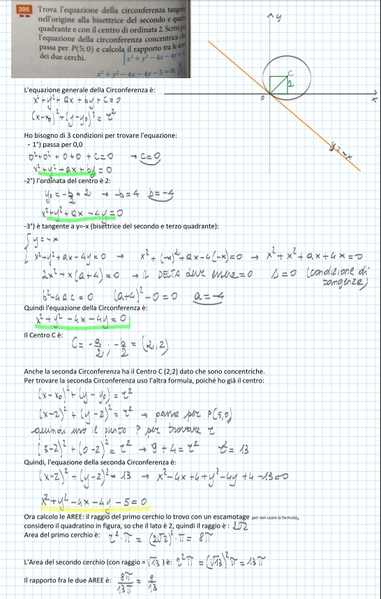 395 Trova l'equazione della circonferenza tangente
nell'origine alla bisettrice del secondo e quarto
quadrante e con il centro di ordinata 2. Scrivi poi
l'equazione della circonferenza concentrica che
passa per P(5; 0) e calcola il rapporto tra le aree
dei due cerchi.
[x²+y²-4x-4y=0;
x²+y²-4x-4y-5=0;
y
C
2
O
x
y=-x
L'equazione generale della Circonferenza è:
x²+y²+ax+by+c=0
(x-x₀)²+(y-y₀)²=r²
Ho bisogno di 3 condizioni per trovare l'equazione:
- 1°) passa per 0,0
0²+0²+0+0+c=0 → c=0
x²+y²+ax+by=0
-2°) l'ordinata del centro è 2:
y₀=-b/2=2 → -b=4 b=-4
x²+y²+ax-4y=0
-3°) è tangente a y=-x (bisettrice del secondo e terzo quadrante):
{y=-x
x²+y²+ax-4y=0 → x²+(-x)²+ax-4(-x)=0 → x²+x²+ax+4x=0
2x²+x(a+4)=0 → IL DELTA deve essere=0 Δ=0 (condizione di tangenza)
b²-4ac=0 (a+4)²-0=0 a=-4
Quindi l'equazione della Circonferenza è:
x²+y²-4x-4y=0
Il Centro C è:
C=-a/2,-b/2=(2,2)
Anche la seconda Circonferenza ha il Centro C (2;2) dato che sono concentriche.
Per trovare la seconda Circonferenza uso l'altra formula, poiché ho già il centro:
(x-x₀)²+(y-y₀)=r²
(x-2)²+(y-2)²=r² → passa per P(5,0)
quindi uso il punto P per trovare r
(5-2)²+(0-2)²=r² → 9+4=r² r²=13
Quindi, l'equazione della seconda Circonferenza è:
(x-2)²+(y-2)²=13 → x²-4x+4+y²-4y+4-13=0
x²+y²-4x-4y-5=0
Ora calcolo le AREE: il raggio del primo cerchio lo trovo con un escamotage per non usare la formula,
considero il quadratino in figura, so che il lato è 2, quindi il raggio è : 2√2
Area del primo cerchio è: r²·π=(2√2)²·π=8π
L'Area del secondo cerchio (con raggio =√13) è: r²π=(√13)²π=13π
Il rapporto fra le due AREE è: 8π/13π=8/13